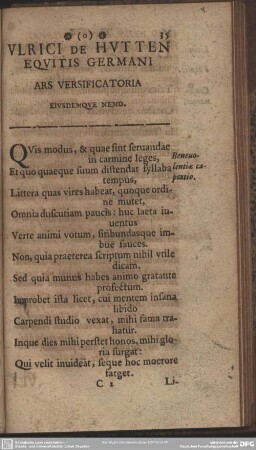 (o) 35
VLRICI DE HVTTEN
EQVITIS GERMANI
ARS VERSIFICATORIA
EIVSDEMQVE NEMO.
QVis modus, & quae sint seruandae
in carmine leges,
Beneuo-
lentiæ ca-
ptatio.
Et quo quaeque suum distendat syllaba
tempus,
Littera quas vires habeat, quoque ordi-
ne mutet,
Omnia discutiam paucis: huc laeta iu-
uentus
Verte animi votum, sitibundasque im-
bue fauces.
Non, quia praeterea scriptum nihil vtile
dicam.
Sed quia munus habes animo gratante
profectum.
Improbet ista licet, cui mentem insana
libido
Carpendi studio vexat, mihi fama tra-
hatur.
Inque dies mihi perstet honos, mihi glo-
ria surgat:
Qui velit inuideat, seque hoc moerore
fatget.
C 2 Li-